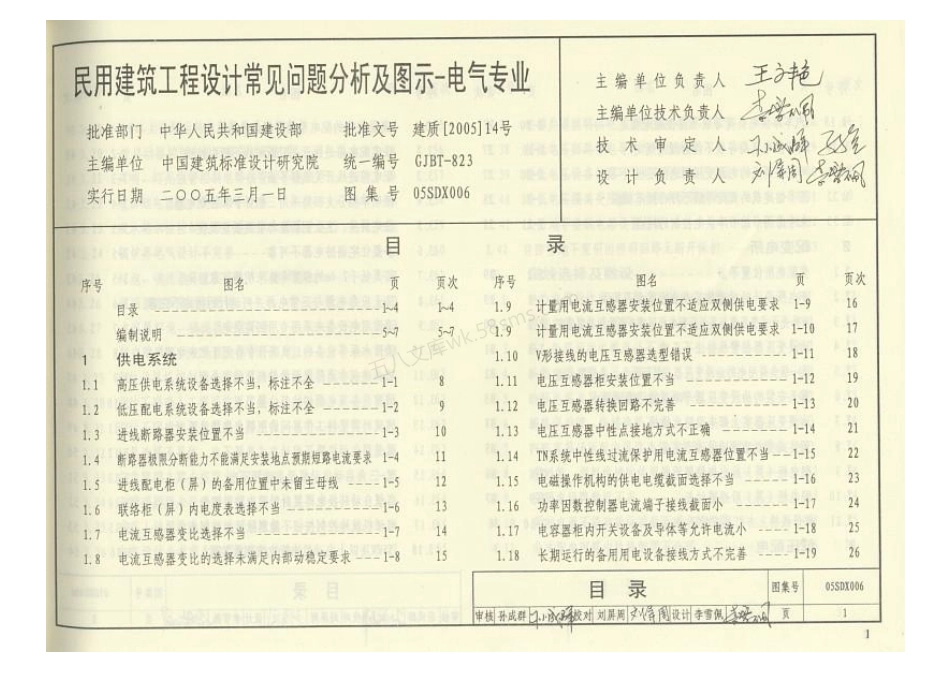 民用建筑工程设计常见问题分析及图示-电气专业
批准部门 中华人民共和国建设部 批准文号 建质[2005]14号
主编单位 中国建筑标准设计研究院 统一编号 GJBT-823
实行日期 二〇〇五年三月一日 图集号 05SDX006
主编单位负责人
主编单位技术负责人 李雪佩
技术审定人 孙成群
设计负责人 刘屏周 李雪佩
目录
序号 图名 页 页次
目录 1-4 1-4
编制说明 5-7 5-7
1 供电系统
1.1 高压供电系统设备选择不当,标注不全 1-1 8
1.2 低压配电系统设备选择不当,标注不全 1-2 9
1.3 进线断路器安装位置不当 1-3 10
1.4 断路器极限分断能力不能满足安装地点预期短路电流要求 1-4 11
1.5 进线配电柜(屏)的备用位置中未留主母线 1-5 12
1.6 联络柜(屏)内电度表选择不当 1-6 13
1.7 电流互感器变比选择不当 1-7 14
1.8 电流互感器变比的选择未满足内部动稳定要求 1-8 15
序号 图名 页 页次
1.9 计量用电流互感器安装位置不适应双侧供电要求 1-9 16
1.9 计量用电流互感器安装位置不适应双侧供电要求 1-10 17
1.10 V形接线的电压互感器选型错误 1-11 18
1.11 电压互感器柜安装位置不当 1-12 19
1.12 电压互感器转换回路不完善 1-13 20
1.13 电压互感器中性点接地方式不正确 1-14 21
1.14 TN系统中性线过流保护用电流互感器位置不当 1-15 22
1.15 电磁操作机构的供电电缆截面选择不当 1-16 23
1.16 功率因数控制器电流端子接线截面小 1-17 24
1.17 电容器柜内开关设备及导体等允许电流小 1-18 25
1.18 长期运行的备用用电设备接线方式不完善 1-19 26
目录 图集号 05SDX006
审核 孙成群 孙成群 校对 刘屏周 刘屏周 设计 李雪佩 李雪佩 页 1
1